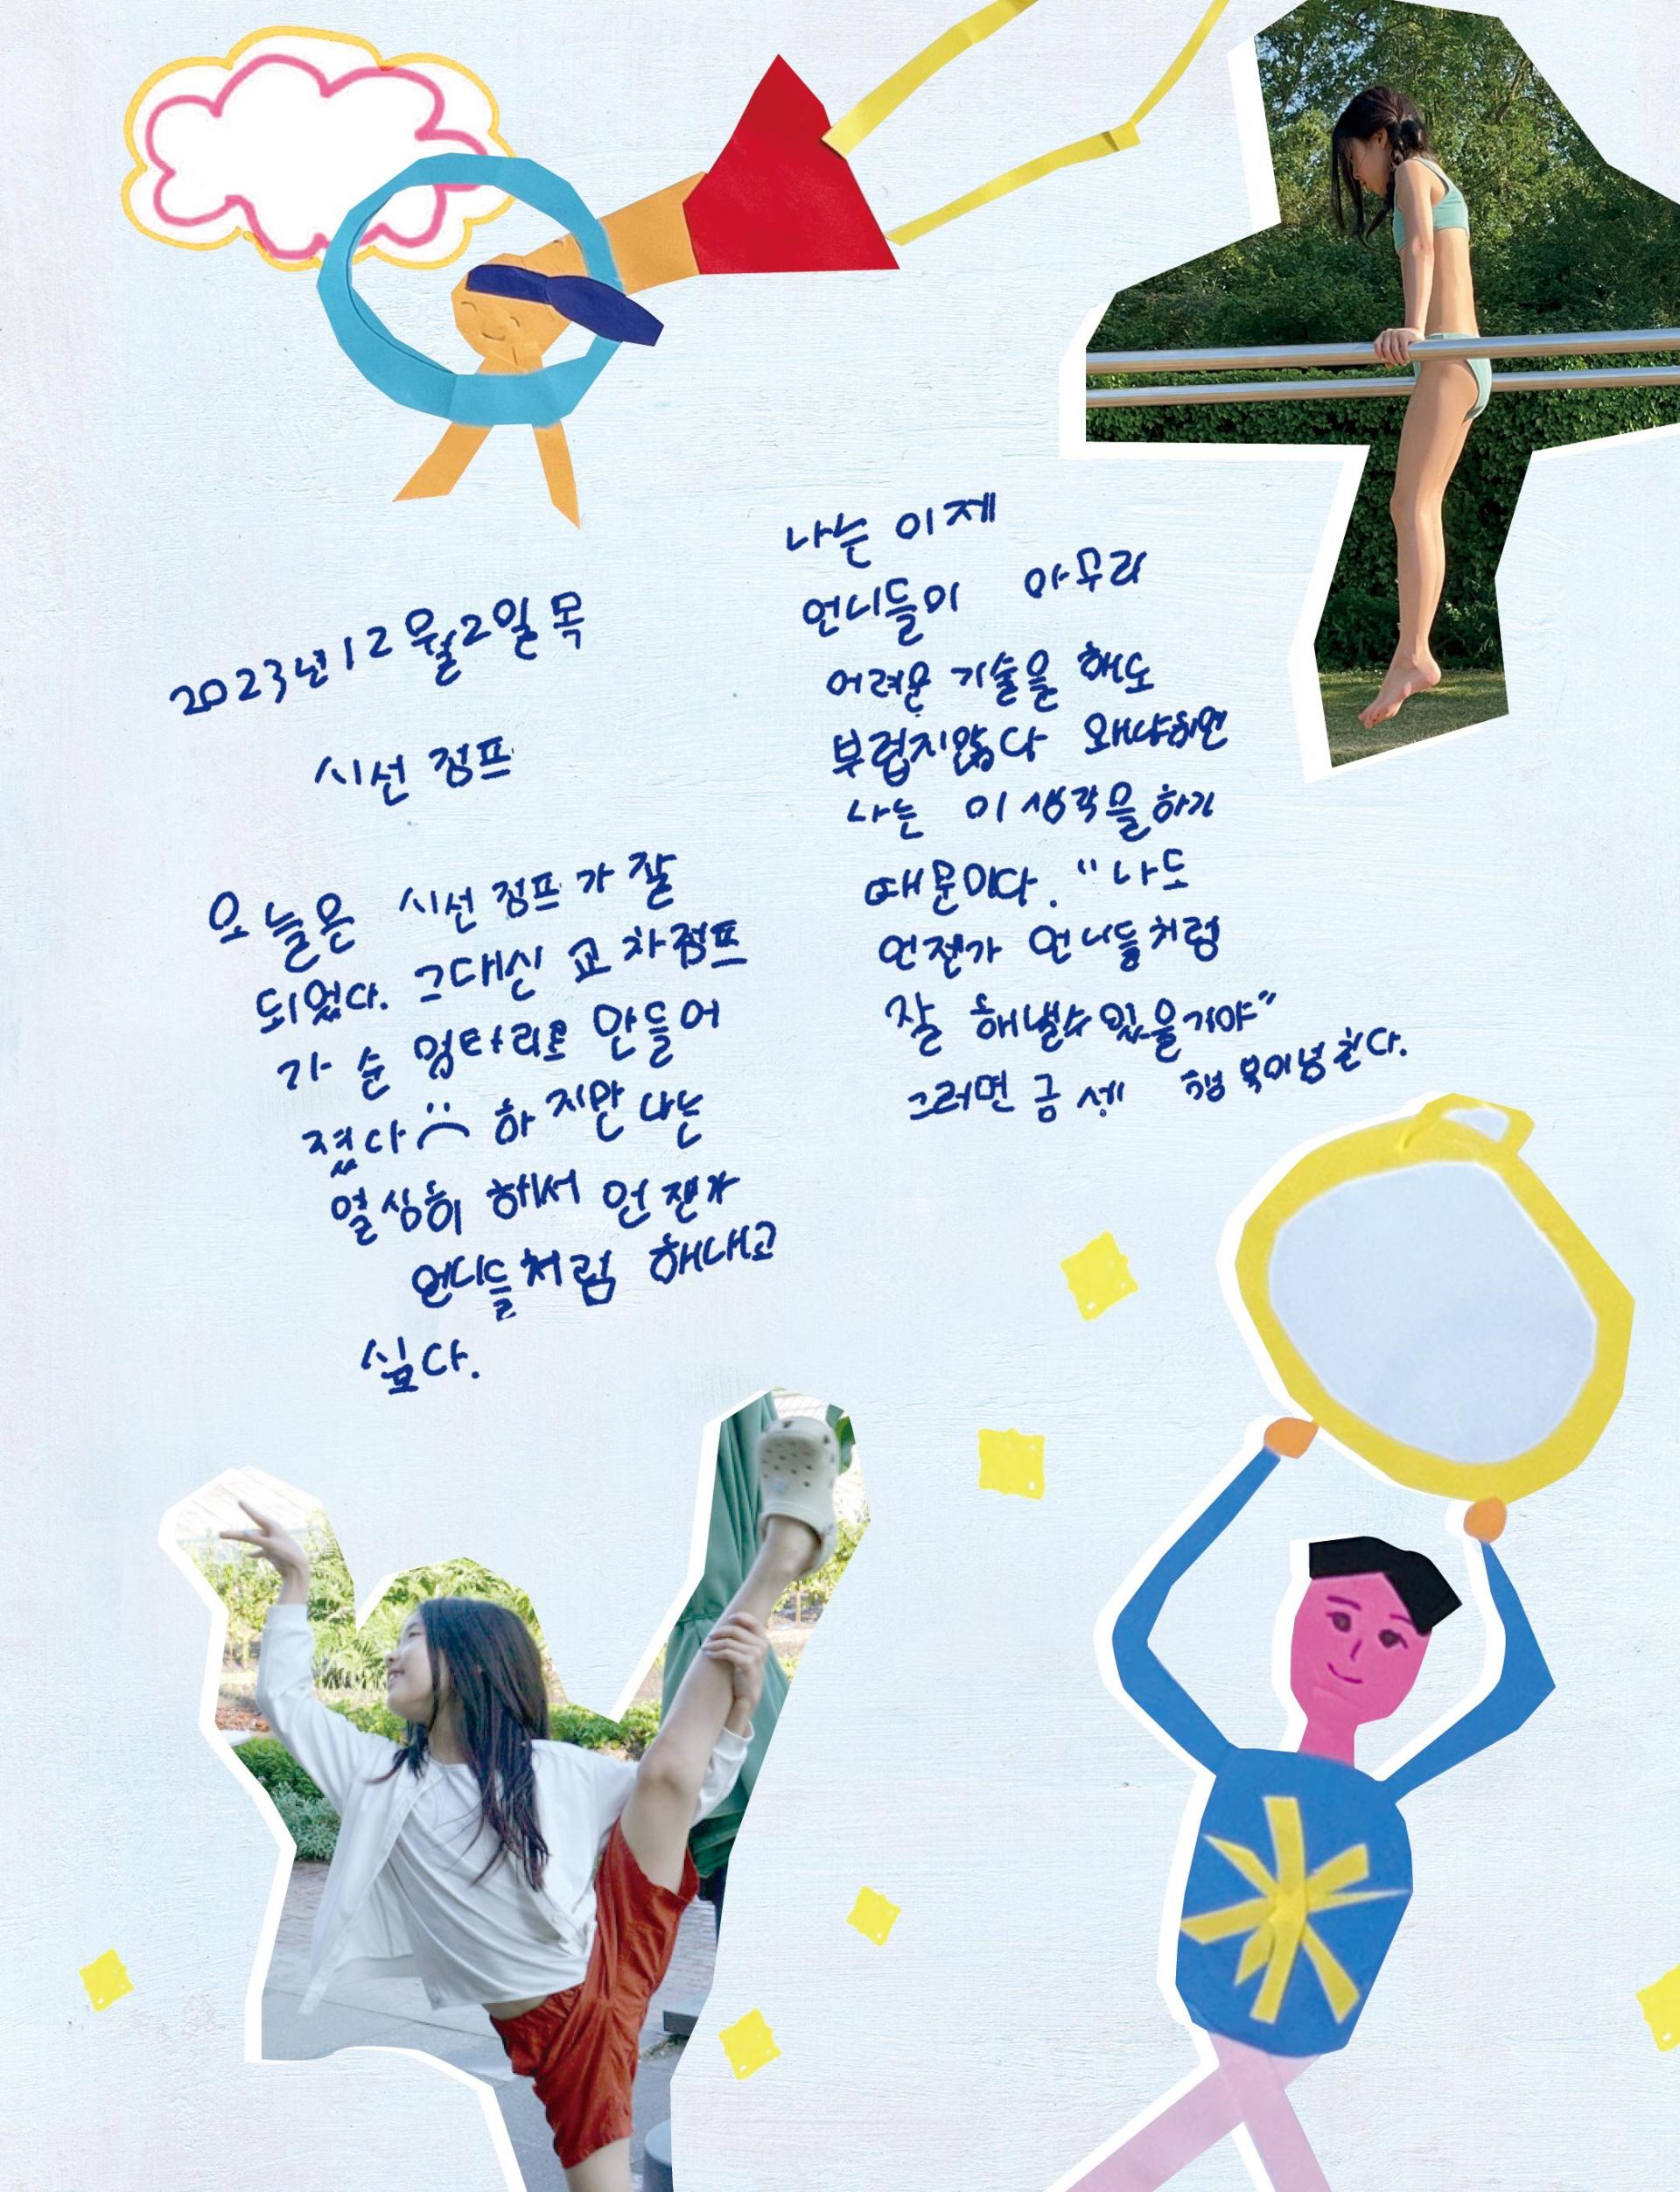 2023년 12월 2일 목
시선 점프
오늘은 시선 점프가 잘
되었다. 그대신 교차점프
가 순 엉터리로 만들어
졌다 하지만 나는
열심히 해서 언젠가
언니들처럼 해내고
싶다.
나는 이제
언니들이 아무리
어려운 기술을 해도
부럽지않다 왜냐하면
나는 이 생각을 하기
때문이다. "나도
언젠가 언니들처럼
잘 해낼수있을거야"
그러면 금세 행복이넘친다.